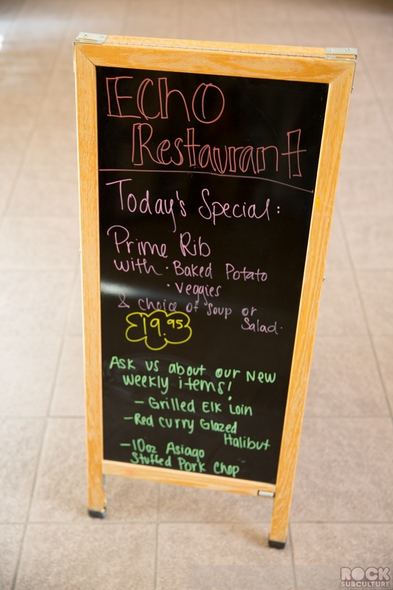 Echo
Restaurant
Today's Special:
Prime Rib
with • Baked Potato
• Veggies
& choice of soup or
Salad.
$19.95
Ask us about our new
weekly items!
- Grilled Elk Loin
- Red Curry Glazed
Halibut
- 10oz Asiago
Stuffed Pork Chop
ROCK
SUBCULTURE